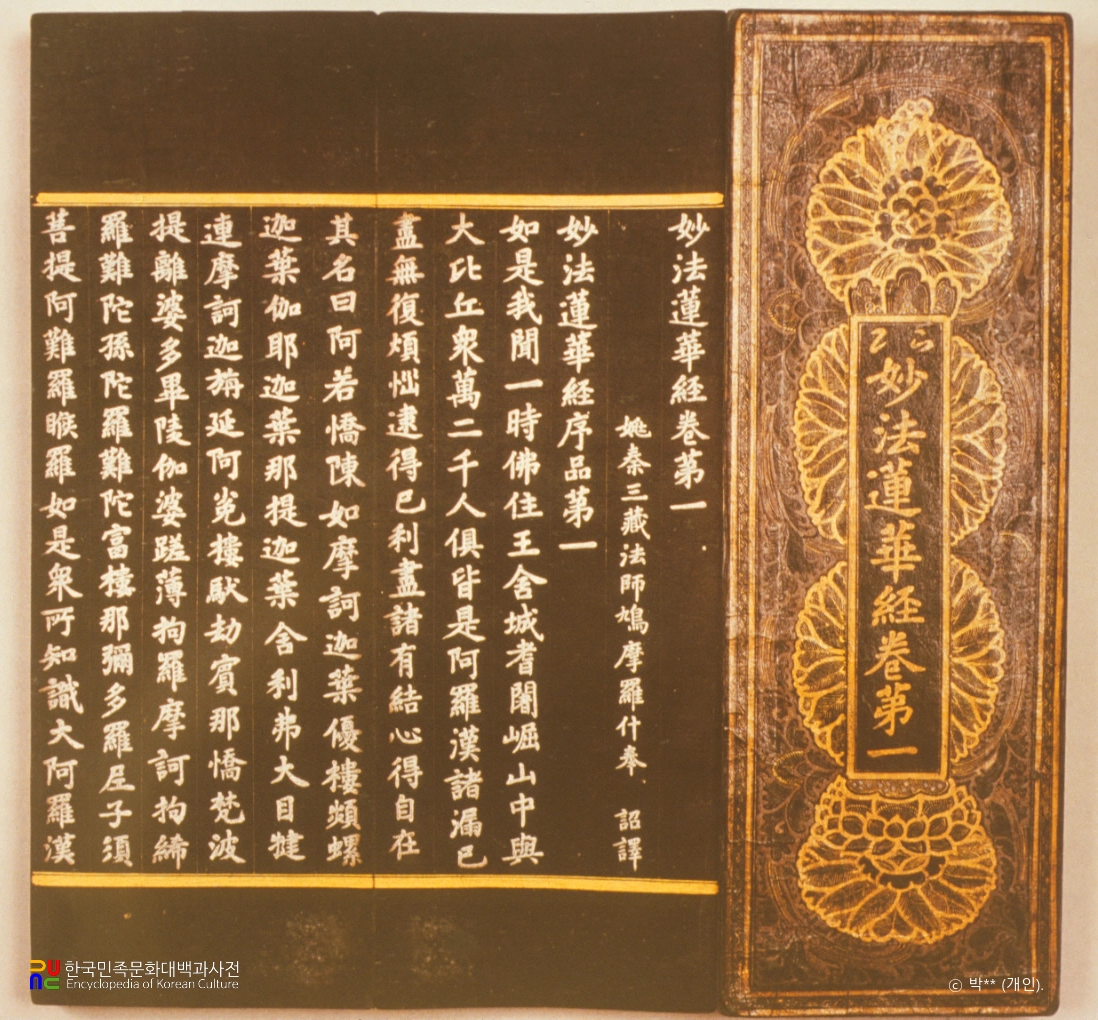 妙法蓮華経卷苐一
妙法蓮華経卷苐一
姚秦三藏法師鳩摩羅什奉 詔譯
妙法蓮華経序品苐一
如是我聞一時佛住王舍城耆闍崛山中與
大比丘衆萬二千人俱皆是阿羅漢諸漏已
盡無復煩惱逮得已利盡諸有結心得自在
其名曰阿若憍陳如摩訶迦葉優樓頻螺
迦葉伽耶迦葉那提迦葉舍利弗大目揵
連摩訶迦旃延阿㝹樓馱劫賓那憍梵波
提離婆多畢陵伽婆蹉薄拘羅摩訶拘絺
羅難陀孫陀羅難陀富樓那彌多羅尼子須
菩提阿難羅睺羅如是衆所知識大阿羅漢
한국민족문화대백과사전
Encyclopedia of Korean Culture
ⓒ 박** (개인).